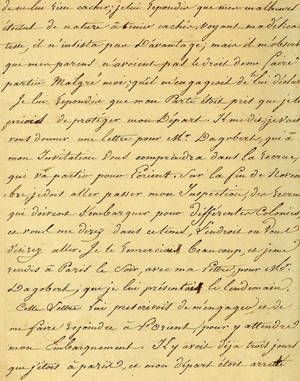 de ne lui rien cacher; je lui répondis que mes malheurs
étoient de nature à tenir caché, voyant ma délica
tesse, il n'insista pas D'avantage; mais il m'observa
que mes parens n'avoient pas le droit de me faire
partir Malgré moi; qu'il m'engageoit de lui
Je lui Répondis que mon Parti étoit pris que je le
priois de proteger mon Départ. Il me dis, je vais
vous donner une lettre pour Mr. Dagobert, qui à
mon Invitation Vous comprendra dans la Recrue
qui va partir pour l'Orient. Sur la fin de Novem
bre je dois aller passer mon Inspection, des Recrues
qui doivent s'embarquer pour différentes Colonies
et vous me direz dans ce tems, l'endroit ou Vous
désirez aller. Je le remerciai beaucoup, et je me
rendis à Paris le Soir, avec ma lettre pour Mr.
Dagobert, que je lui présentai le lendemain.
Cette Lettre lui prescrivoit de m'engager, et de
me faire Rejoindre à l'Orient, pour y attendre
mon Embarquement. Il y avoit déja trois jours
que j'étois à parid, et mon départ étoit arrêtté